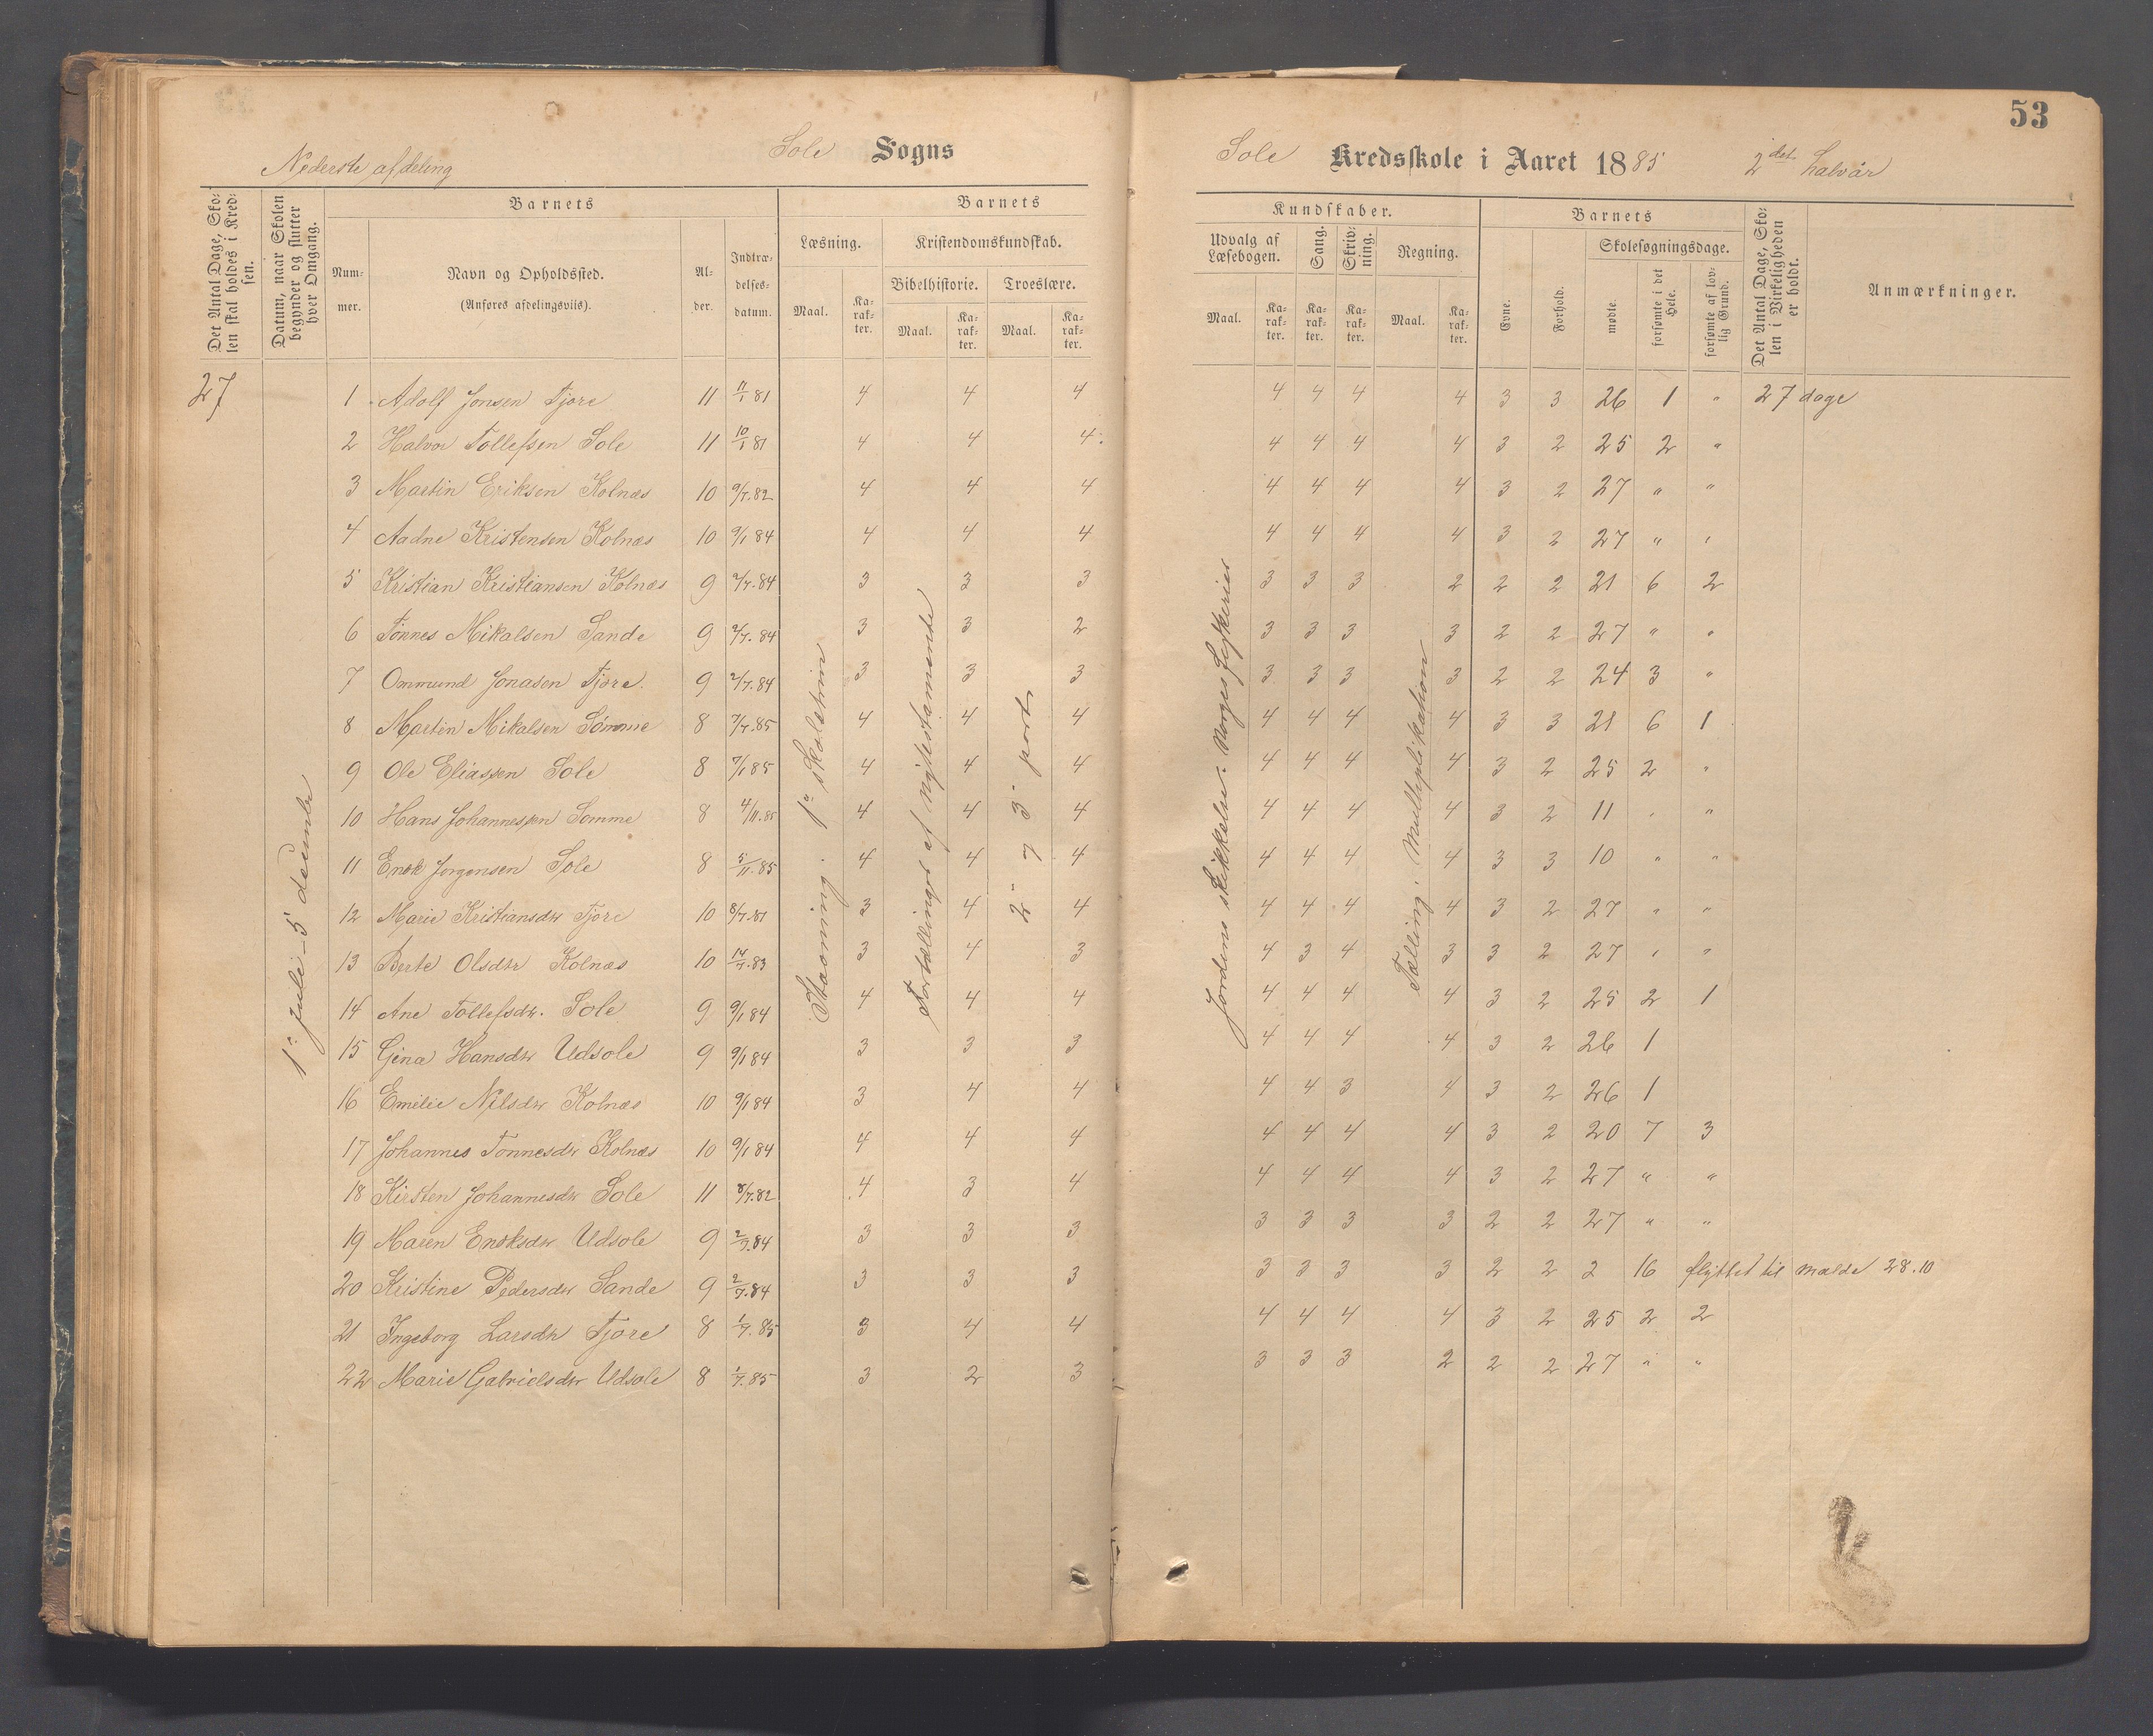 53
Nederste afdeling
Sole Sogns
Sole Kredsskole i Aaret 1885 2det halvår
Det Antal Dage, Skolen skal holdes i Kredsen.
Datum, naar Skolen begynder og slutter hver Omgang.
Barnets
Nummer.
Navn og Opholdssted.
(Anføres afdelingsviis).
Alder.
Indtrædelsesdatum.
Barnets
Læsning.
Maal.
Karakter.
Kristendomskundskab.
Bibelhistorie.
Maal.
Karakter.
Troeslære.
Maal.
Karakter.
Kundskaber.
Udvalg af Læsebogen.
Maal.
Karakter.
Sang.
Karakter.
Skrivning.
Karakter.
Regning.
Maal.
Karakter.
Barnets
Evne.
Forhold.
Skolesøgningsdage.
mødte.
forsømte i det Hele.
forsømte af lovlig Grund.
Det Antal Dage, Skolen i Virkeligheden er holdt.
Anmærkninger.
27
1ste juli - 5 december
Stavning. 1ste skoletrin
Fortællinger af nytestamente
2den og 3die part
Jordens skikkelse. Norges fiskerier
Tælling. Multiplikation
1 Adolf Jonsen Tjore 11 11/1 81 4 4 4 4 4 4 4 3 3 26 1 " 27 dage
2 Halvor Tollefsen Sole 11 10/1 81 4 4 4 4 4 4 4 3 2 25 2 "
3 Martin Eriksen Kolnæs 10 9/7.82 4 4 4 4 4 4 4 3 2 27 " "
4 Aadne Kristensen Kolnæs 10 9/1 84 4 4 4 4 4 4 4 3 2 27 " "
5 Kristian Kristiansen Kolnæs 9 2/7.84 3 3 3 3 3 3 2 2 2 21 6 2
6 Tønnes Mikalsen Sande 9 2/7.84 3 3 2 3 3 3 3 2 2 27 " "
7 Ommund Jonasen Tjore. 9 2/7.84 3 3 3 3 3 3 3 2 2 24 3 "
8 Martin Mikalsen Sømme 8 7/7.85 4 4 4 4 4 4 4 3 3 21 6 1
9 Ole Eliassen Sole 8 7/1 85 4 4 4 4 4 4 4 3 2 25 2 "
10 Hans Johannessen Somme 8 4/11.85 4 4 4 4 4 4 4 3 2 11 " "
11 Enok Jorgensen Sole 8 5/11.85 4 4 4 4 4 4 4 3 3 10 " "
12 Marie Kristiansdtr Tjore 10 8/7.81 3 4 4 4 4 4 4 3 2 27 " "
13 Berte Olsdtr Kolnæs 10 14/7.83 3 4 3 4 3 4 3 3 2 27 " "
14 Ane Tollefsdtr. Sole 9 9/1 84 4 4 4 4 4 4 4 3 2 25 2 1
15 Gina Hansdtr Udsole 9 9/1 84 3 3 3 4 4 4 4 3 2 26 1
16 Emilie Nilsdtr Kolnæs 10 9/1 84 3 4 4 4 4 3 4 3 2 26 1
17 Johannes Tonnesdtr Kolnæs 10 9/1 84 4 4 4 4 4 4 4 3 2 20 7 3
18 Kirsten Johannesdtr Sole 11 8/7.82 4 3 4 4 4 4 4 3 2 27 " "
19 Maren Enoksdtr Udsole 9 2/7.84 3 3 3 3 3 3 3 2 2 27 " "
20 Kristine Pedersdtr Sande 9 2/7.84 3 3 3 3 3 3 3 2 2 2 16 flyttet til Mælde 28.10
21 Ingeborg Larsdtr Tjore 8 1/7.85 3 4 4 4 4 4 4 3 2 25 2 2
22 Marie Gabrielsdtr Udsole 8 1/7.85 3 2 3 3 3 3 2 2 2 27 " "